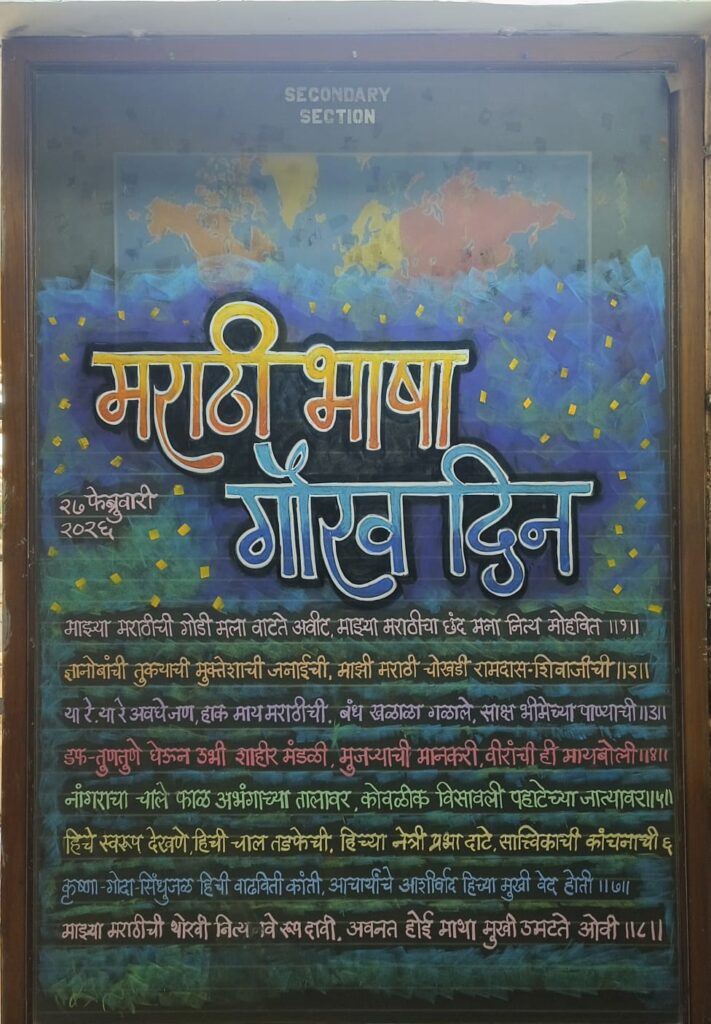 SECONDARY
SECTION
मराठी भाषा
गौरव दिन
२७ फेब्रुवारी
२०२६
माझ्या मराठीची गोडी मला वाटते अवीट, माझ्या मराठीचा छंद मना नित्य मोहवित ॥१॥
ज्ञानोबांची तुकयाची मुक्तेशाची जनाईची, माझी मराठी चोखडी रामदास-शिवाजीची ॥२॥
या रे, या रे अवघे जण, हाक माय मराठीची, बंध खळाळा गळाले, साक्ष भीमेच्या पाण्याची ॥३॥
डफ-तुणतुणे घेऊन उभी शाहीर मंडळी, मुजऱ्याची मानकरी, वीरांची ही मायबोली ॥४॥
नांगराचा चाले फाळ अभंगाच्या तालावर, कोवळीक विसावली पहाटेच्या जात्यावर ॥५॥
हिचे स्वरूप देखणे, हिची चाल तडफेची, हिच्या नेत्री प्रभा दाटे, सात्त्विकाची कांचनाची ६
कृष्णा-गोदा-सिंधुजळ हिची वाढविती कांती, आचार्यांचे आशीर्वाद हिच्या मुखी वेद होती ॥७॥
माझ्या मराठीची थोरवी नित्य वे रूप दावी, अवनत होई माथा मुखी उमटते ओवी ॥८॥